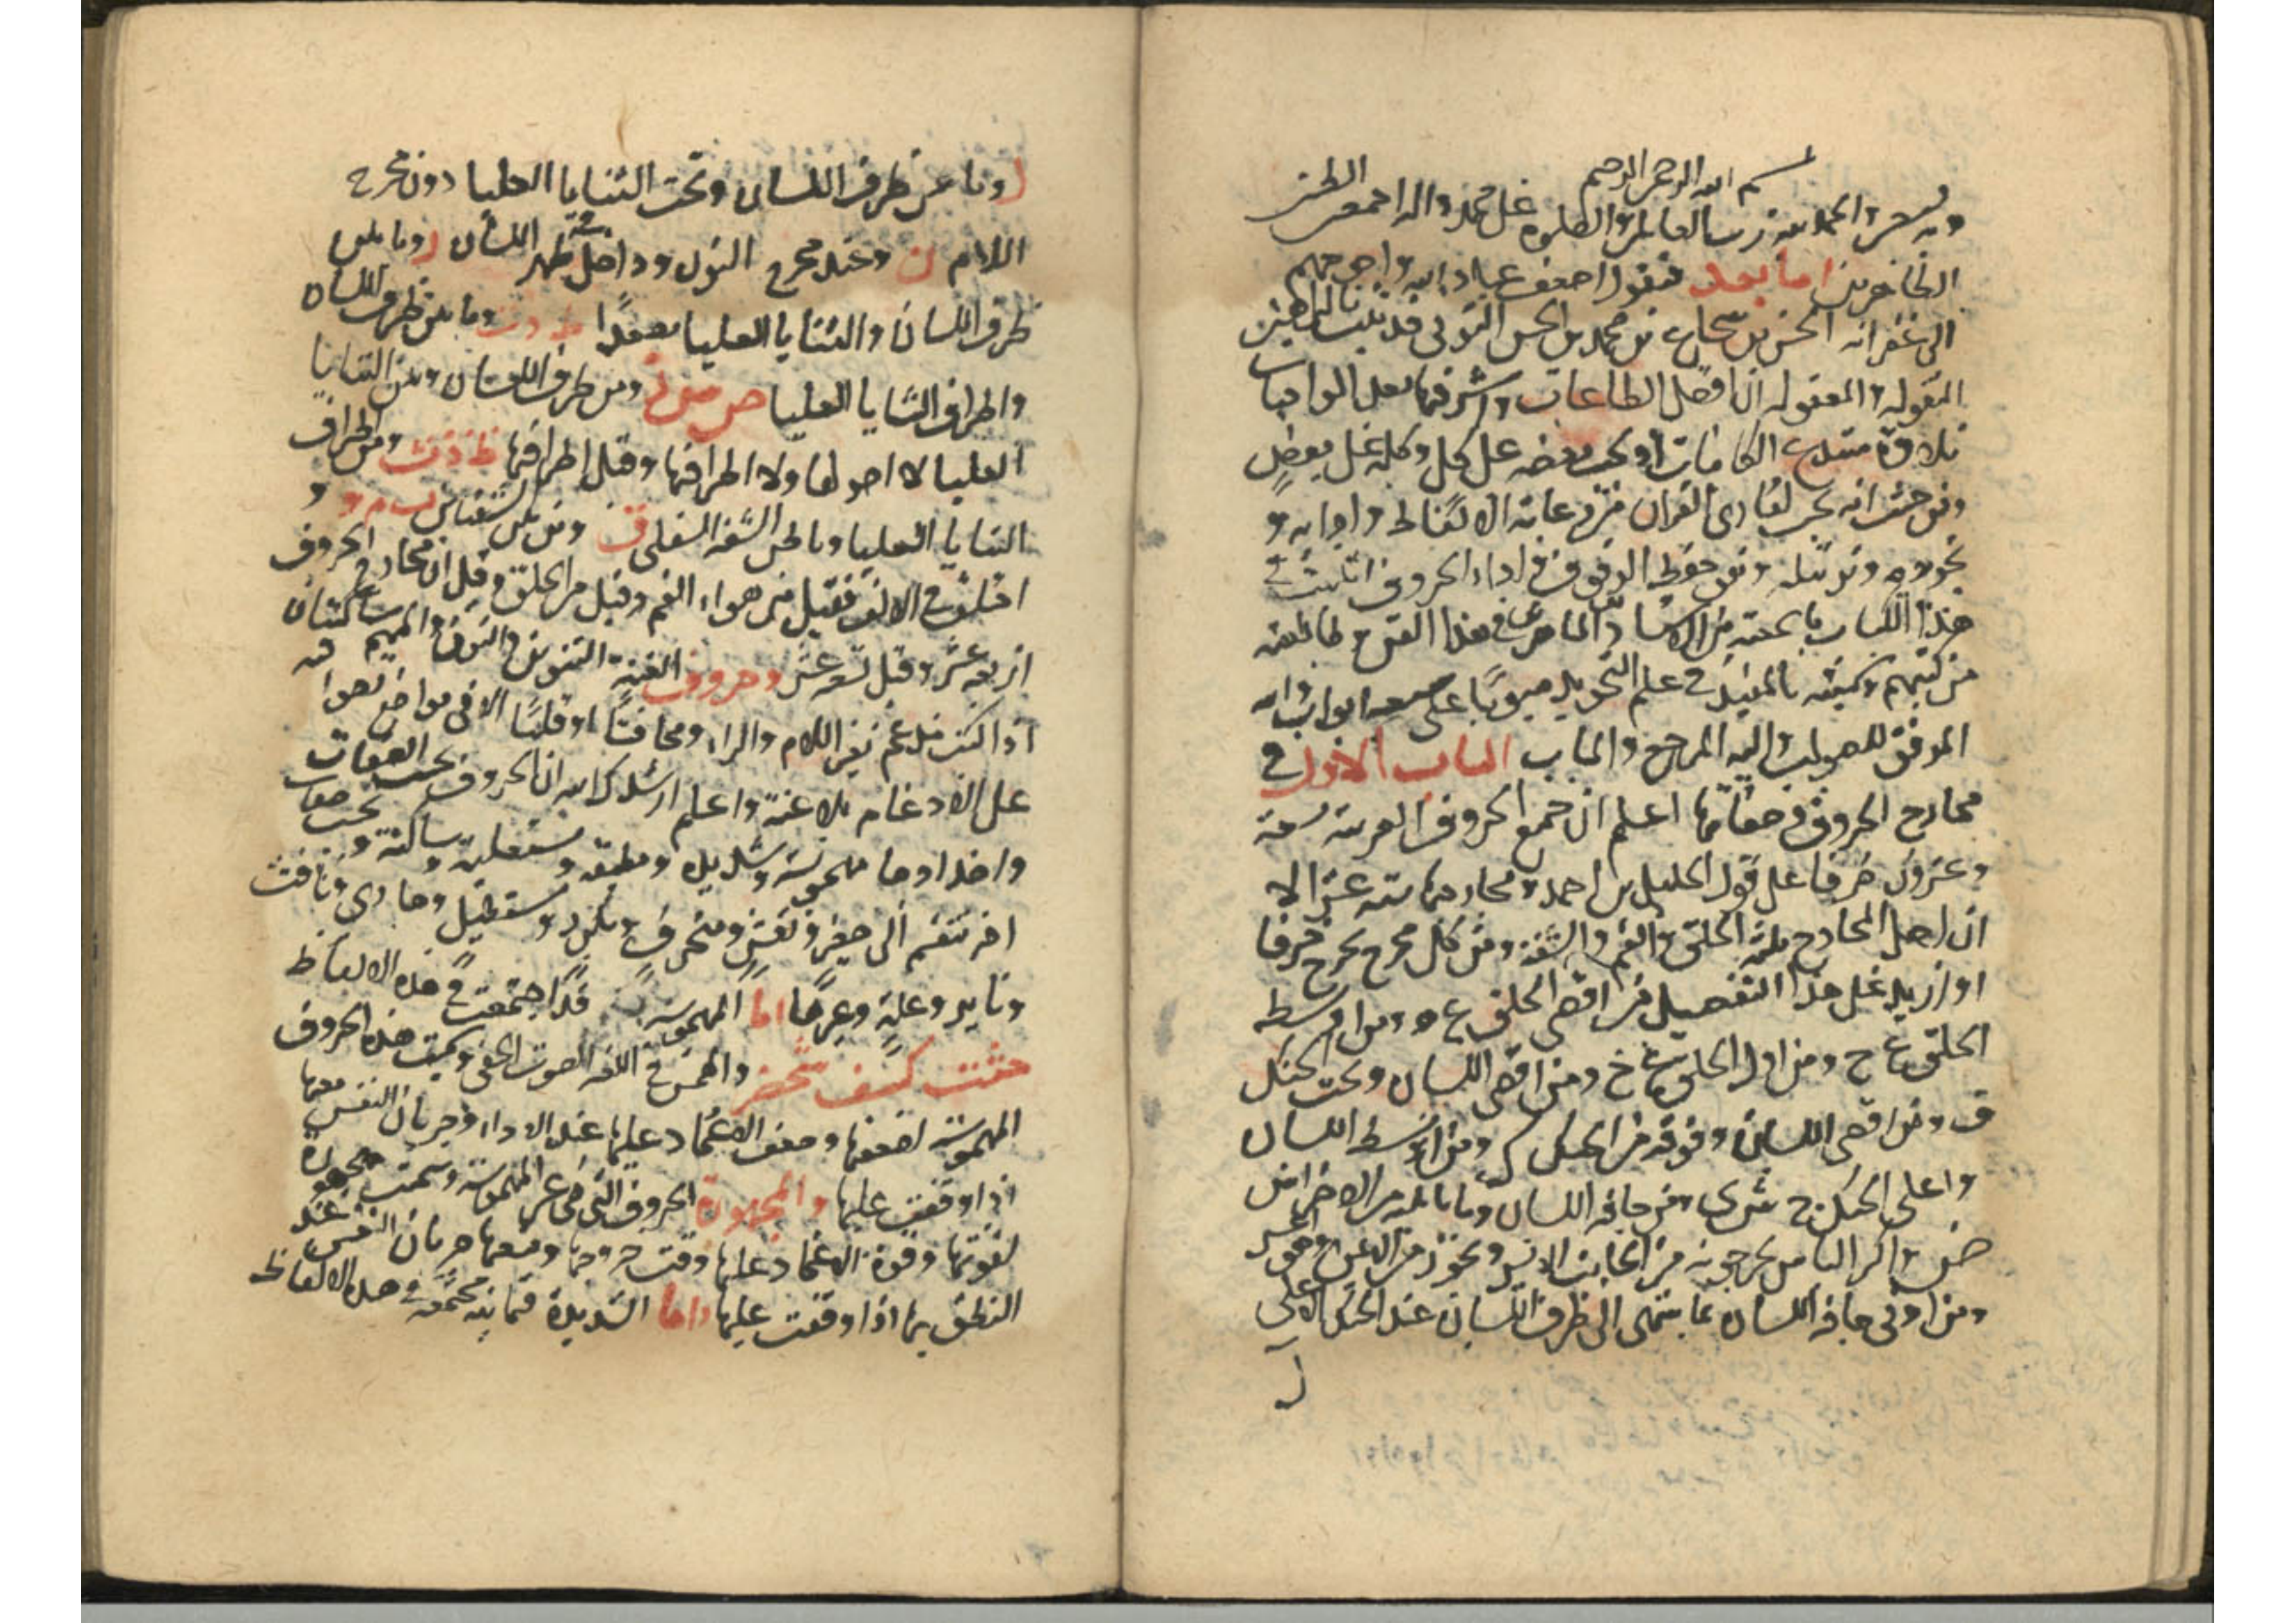 بسم الله الرحمن الرحيم
وبه نستعين الحمد لله رب العالمين والصلوة على محمد واله اجمعين الطيبين
الطاهرين اما بعد فيقول اضعف عباد الله واحوجهم
الى غفرانه الحسن بن شجاع بن محمد بن الحسن التوني قد ثبت بالبراهين
المنقولة والمعقولة ان افضل الطاعات واشرفها بعد الواجبات
تلاوة الكائنات او بعضه على كل وكله على بعض
ومن حيث انه يجب لقارئ القران من رعاية الالفاظ وادابه و
تجويده وترتيله ومن حفظ الوقوف في اداء الحروف اثبت في
هذا الكتاب ما سمعته من الاستاد الماهر في هذا الفن وما طالعته
من كتبهم وسميته بالمفيد في علم التجويد مبوبا على ابواب والله
الموفق للصواب واليه المرجع والماب الباب الاول في
مخارج الحروف وصفاتها اعلم ان جميع الحروف العربية تسعة
وعشرون حرفا على قول الخليل بن احمد ومخارجها ستة عشر الا
ان اصل المخارج ثلثة الحلق والفم والشفة ومن كل مخرج يخرج حرفا
او ازيد على هذا التفصيل من اقصى الحلق ء ه ومن اوسط
الحلق ع ح ومن اول الحلق غ خ ومن اقصى اللسان وتحت الحنك
ق ومن اقصى اللسان وفوقه من الحنك ك ومن اوسط اللسان
واعلى الحنك ج ش ى ومن حافة اللسان وما يليه من الاضراس
ض واكثر الناس يخرجونه من الجانب الايسر ويجوز من الايمن وهو اعسر
ومن ادنى حافة اللسان بما ينتهى الى طرف اللسان عند الحنك الاعلى
ل
ر وما عن طرف اللسان وتحت الثنايا العليا دون مخرج
اللام ن وعند مخرج النون وداخل ظهر اللسان ر وما بين
طرف اللسان والثنايا العليا مصعدا ط د ت وما بين طرف اللسان
واطراف الثنايا العليا ص س ز ومن طرف اللسان وبين الثنايا
العليا لا اصولها ولا اطرافها وقيل اطرافها ظ ذ ث ومن اطراف
الثنايا العليا وباطن الشفة السفلى ف ومن بين الشفتين ب م و و
اختلف في الالف فقيل من هواء الفم وقيل من الحلق وقيل ان مخارج الحروف
اربعة عشر وقيل تسعة عشر وحروف الغنة التنوين والنون والميم ساكنتان
اذا لم يدغم في اللام والراء
على الادغام بلا غنة واعلم ارشدك الله ان الحروف بحسب الصفات
واضدادها مهموسة وشديدة ومطبقة ومستعلية وساكنة وبحسب صفات
اخر تنقسم الى صفير وتفش ومنحرف ومكرر ومستطيل وهاوى ونافث
وعلة وغيرها اما المهموسة قد اجتمعت في هذه الالفاظ
حثت كسف شخصه والهمس في اللغة الصوت الخفي وسميت هذه الحروف
المهموسة لضعفها وضعف الاعتماد عليها عند الاداء وجريان النفس معها
اذا وقفت عليها والمجهورة الحروف التي هي غير المهموسة وسميت مجهورة
لقوتها وقوة الاعتماد عليها وقت خروجها ومنعها جريان النفس عند
النطق بها اذا وقفت عليها واما الشديدة فثمانية مجتمعة في هذه الالفاظ